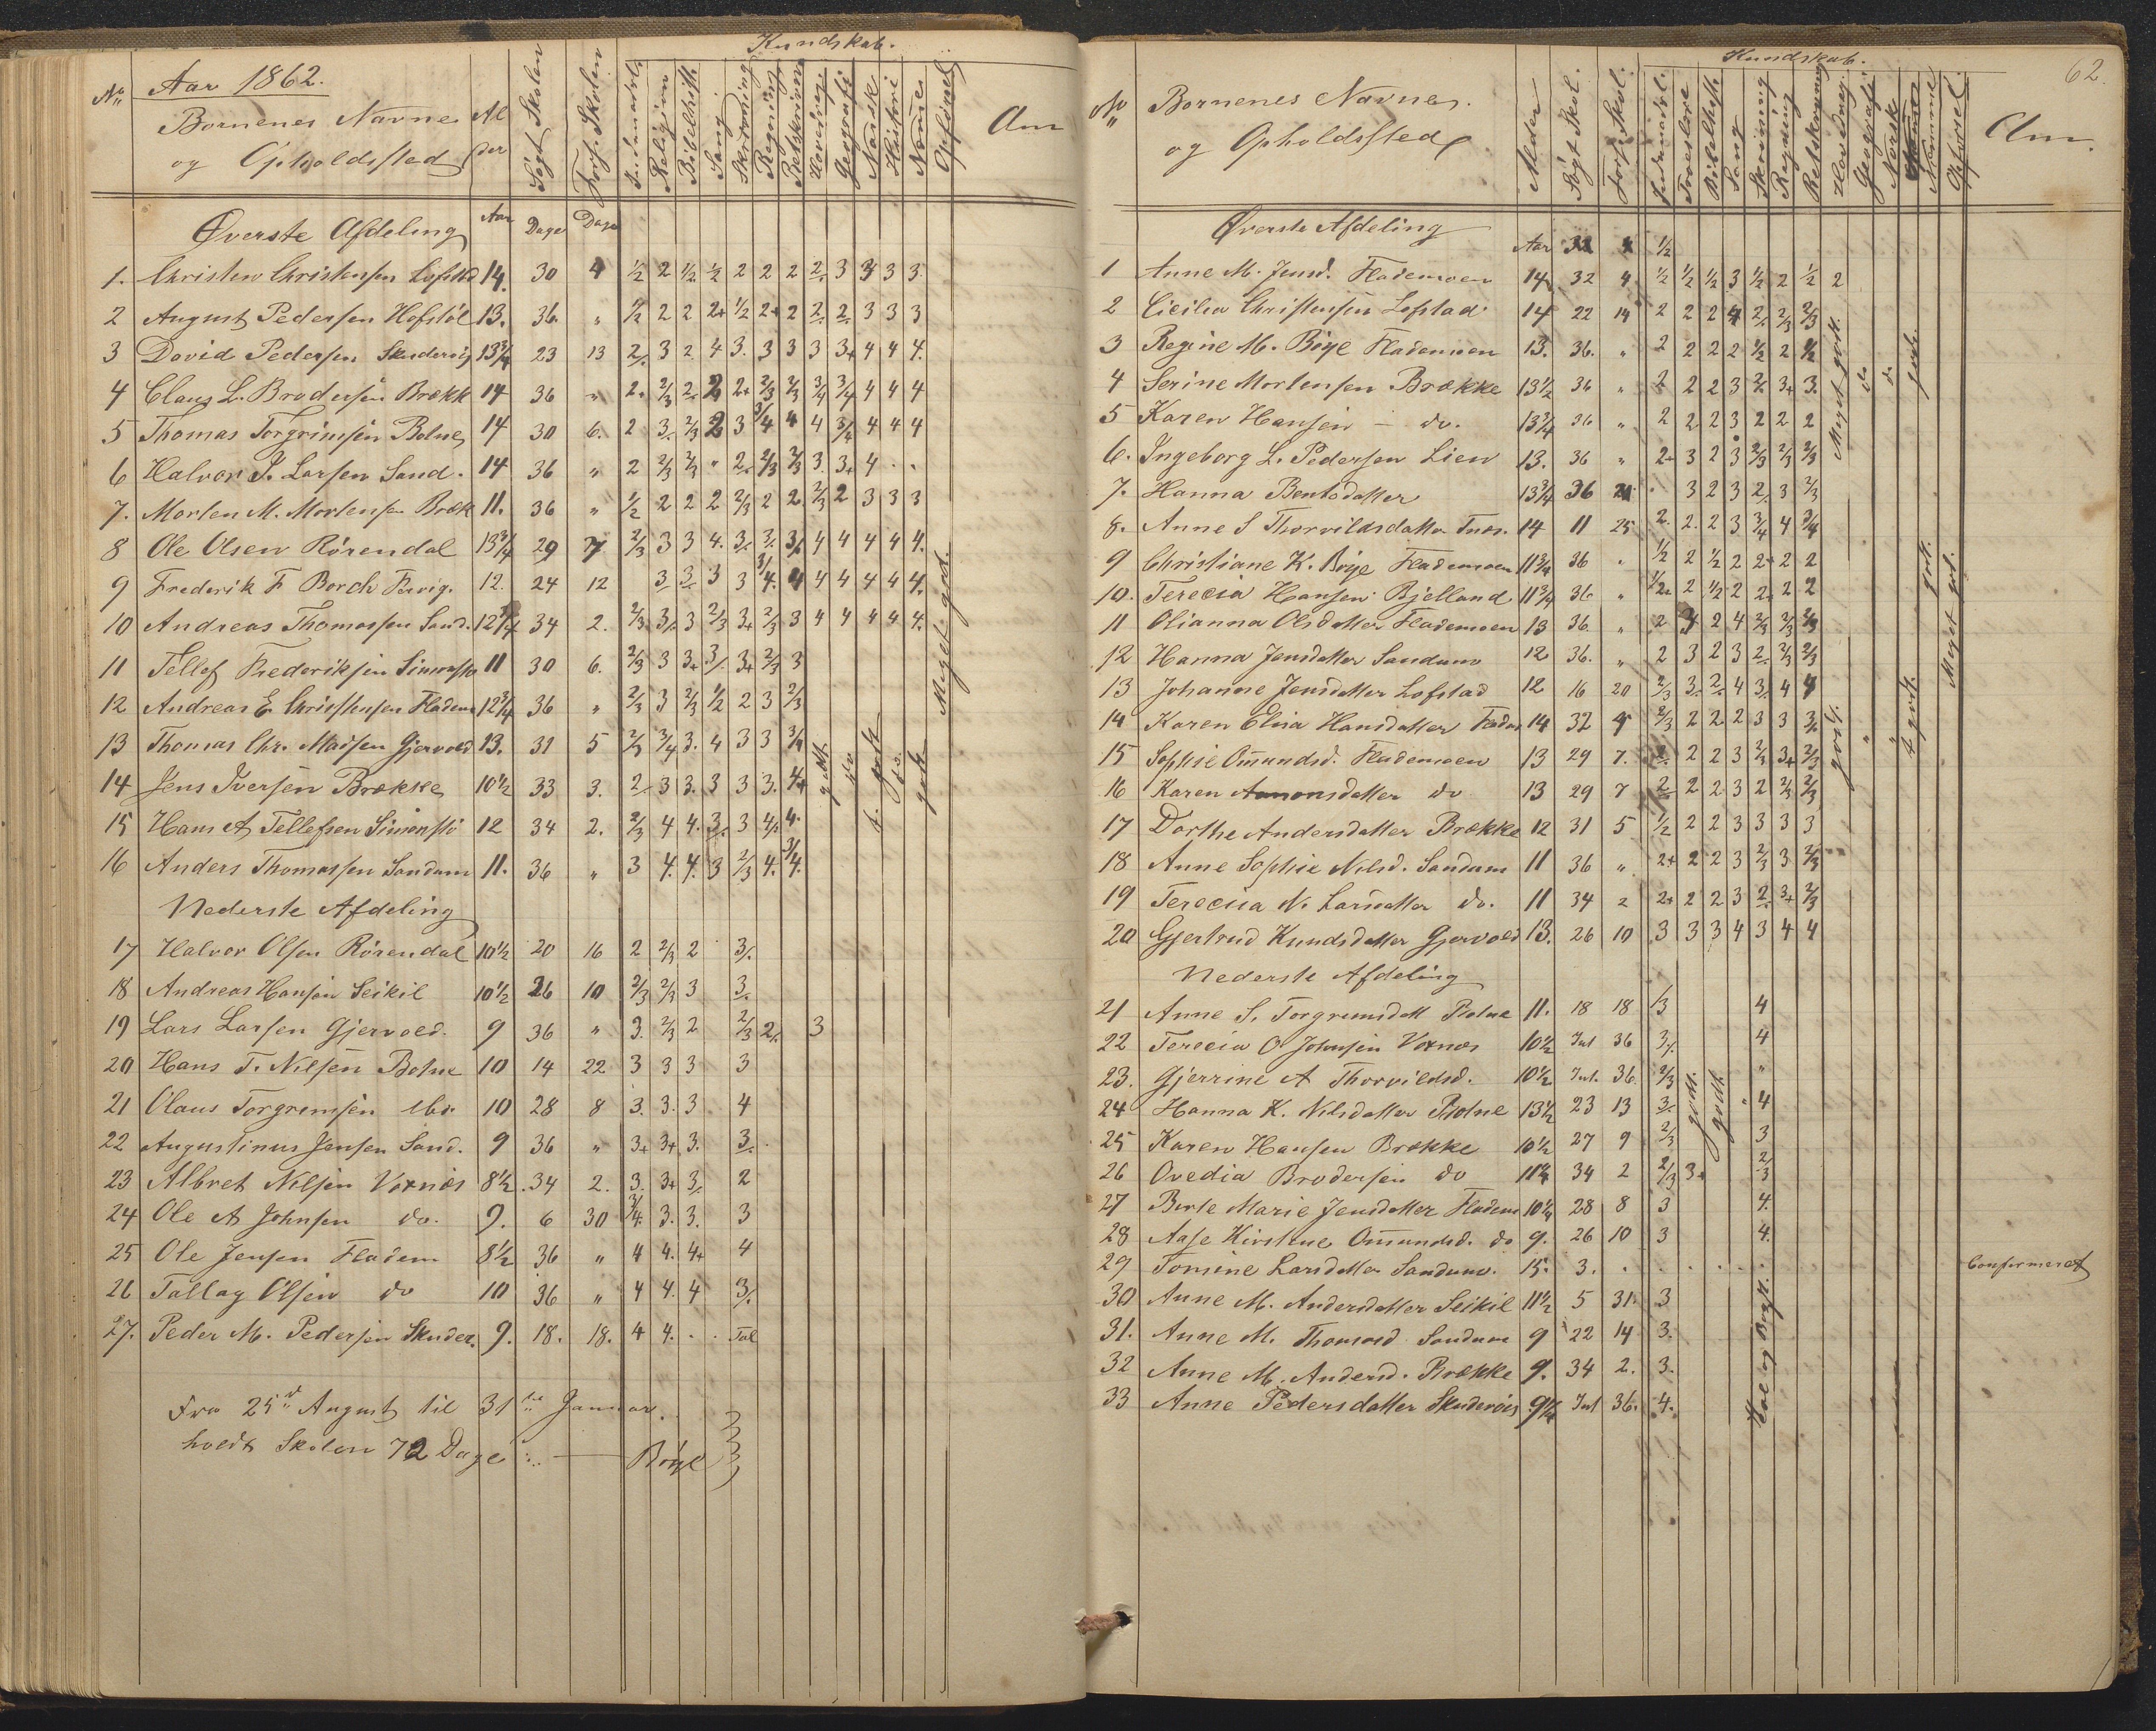 Kundskab.
No Aar 1862.
Børnenes Navne og Opholdssted Alder Søgt Skolen Fors. Skolen Indenadsl. Religion Bibelhist. Sang Skrivning Regning Retskrivn Hovedreg Geografi Norsk Historie Opførsel Anm
Øverste Afdeling Aar Dage Dage
1. Christen Christensen Lofstad 14. 30 4 1/2 2 1/2 1/2 2 2 2 2. 3 3 3 3
2 August Pedersen Hofstöl 13. 36 " 1/2 2 2 2+ 1/2 2+ 2 2. 2. 3 3 3
3 David Pedersen Skudervig 13 3/4 23 13 2. 3 2 4 3. 3 3 3 3+ 4 4 4.
4 Claus L. Brodersen Brække 14 36 " 2. 2/3 2. 2 2+ 2/3 2/3 3/4 3/4 4 4 4
5 Thomas Torgrimsen Bolne 14 30 6. 2 3. 2/3 2 3 3/4 4 4 3/4 4 4 4
6 Halvor J. Larsen Sand. 14 36 " 2 2/3 2/3 " 2. 2/3 2/3 3. 3+ 4 . .
7. Morten M. Mortensen Bræk 11. 36 " 1/2 2 2 2 2/3 2 2 2/3 2 3 3 3
8 Ole Olsen Rörendal 13 3/4 29 7 2/3 3 3 4. 3. 3. 3. 4 4 4 4 4.
9 Frederik F Borch Fervig. 12. 24 12 3 3 3 3 3/4. 4 4 4 4 4 4.
10 Andreas Thomassen Sand. 12 3/4 34 2. 2/3 3. 3 2/3 3+ 2/3 3 4 4 4 4 4.
11 Tellef Frederiksen Simonstø 11 30 6. 2/3 3 3+ 3. 3+ 2/3 3
12 Andreas E Christensen Fladem 12 3/4 36 " 2/3 3 2/3 1/2 2 3 2/3
13 Thomas Chr. Madsen Gjervold 13. 31 5 2/3 3/4 3. 4 3 3 3/4
14 Jens Iversen Brække 10 1/2 33 3. 2. 3 3. 3 3 3. 4+
15 Hans A Tellefsen Simonstö 12 34 2. 2/3 4 4. 3. 3 4. 4.
16 Anders Thomassen Sandum 11. 36 " 3 4. 4. 3 2/3 4. 3/4.
godt. do godt do. godt Meget god.
Nederste Afdeling
17 Halvor Olsen Rörendal 10 1/2 20 16 2 2/3 2 3.
18 Andreas Hansen Seikil 10 1/2 26 10 2/3 2/3 3 3.
19 Lars Larsen Gjervold. 9 36 " 3. 2/3 2 2/3 2. 3
20 Hans T. Nilsen Bolne 10 14 22 3 3 3 3
21 Olaus Torgrimsen ibd. 10 28 8 3. 3. 3 4
22 Augustinus Jensen Sand. 9 36 " 3+ 3+ 3. 3.
23 Albret Nilsen Voxnæs 8 1/2 34 2. 3. 3+ 3. 2
24 Ole A Johnsen do. 9. 6 30 3/4. 3. 3. 3
25 Ole Jensen Fladem 8 1/2 36 " 4 4. 4+ 4
26 Tallag Olsen do 10 36 " 4 4. 4 3.
27. Peder M. Pedersen Skuder. 9. 18. 18. 4 4. . . Tal
Fra 25de August til 31te Januar
holdt Skolen 72 Dage . — Böye
62.
Kundskab.
No Børnenes Navne og Opholdssted Alder Søgt Skol. Fors. Skol. Indenadsl. Troeslære Bibelhist. Sang Skrivning Regning Retskrivning Hovedreg Geografi Norsk Nemme Opförsel Anm.
Øverste Afdeling Aar 32 4 1/2
1 Anne M. Jensd. Flademoen 14 32 4 1/2 1/2 1/2 3 1/2 2 1/2 2
2 Cicilia Christensen Lofstad 14 22 14 2 2 2 4 2. 2/3 2/3
3 Regine M. Böye Flademoen 13. 36. " 2 2 2 2 1/2 2 1/2
4 Serine Mortensen Brække 13 1/2 36 " 2 2 2 3 2. 3+ 3.
5 Karen Hansen — do. 13 3/4 36 " 2 2 2 3 2 2 2
6. Ingeborg L. Pedersen Lien 13. 36 " 2+ 3 2 3 2/3 2/3 2/3
7. Hanna Bentsdatter 13 3/4 36 . 3 2 3 2. 3 2/3
8. Anne S Thorvildsdatter 14 11 25 2. 2. 2 3 3/4 4 3/4
9 Christiane K. Böye Flademoen 11 3/4 36 . 1/2 2 1/2 2 2+ 2 2
10. Terecia Hansen Bjelland 11 3/4 36 " 1/2 2 1/2 2 2+ 2 2
11 Olianna Olsdatter Flademoen 13 36 " 2 3 2 4 2/3 2/3 2/3
12 Hanna Jensdatter Sandum 12 36. " 2 3 2 3 2. 2/3 2/3
13 Johanne Jensdatter Lofstad 12 16 20 2/3 3. 2. 4 3. 4 4
14 Karen Elisa Hansdatter Fladm 14 32 4 2/3 2 2 2 3 3 3.
15 Sophie Omundsd. Flademoen 13 29 7. 2. 2 2 3 2/3 3+ 2/3
16 Karen Aamonsdatter do 13 29 7 2 2 2 3 2 2/3 2/3
17 Dorthe Andersdatter Brække 12 31 5 1/2 2 2 3 3 3 3
18 Anne Sophie Nilsd. Sandum 11 36 " 2+ 2 2 3 2/3 3 2/3
19 Terecia N. Larsdatter do. 11 34 2 2+ 2 2 3 2. 3+ 2/3
20 Gjertrud Knudsdatter Gjervold 13. 26 10 3 3 3 4 3 4 4
Meget godt. do do godt. godt. " " godt. godt. Meget god.
Nederste Afdeling
21 Anne S. Torgrimsdatt Bolne 11. 18 18 /3 4
22 Terecia O Johnsen Voxnæs 10 1/2 Int 36 3. 4
23. Gjerrine A Thorvildsd. 10 1/2 Int. 36. 2/3 "
24 Hanna K. Nilsdatter Bolne 13 1/2 23 13 3. " 4
25 Karen Hansen Brække 10 1/2 27 9 2/3 3
26 Ovedia Brodersen do 11 34 2 2/3 3+ 2/3
27 Berte Marie Jensdatter Fladem 10 1/4 28 8 3 4.
28 Aase Kirstine Omundsd. do 9. 26 10 3 4.
29 Tomine Larsdatter Sandum. 15. 3. . . . . . . Confirmeret
30 Anne M. Andersdatter Seikil 11 1/2 5 31. 3
31. Anne M. Thomasd Sandum 9 22 14 3.
32 Anne M. Andersd. Brække 9. 34 2. 3.
33 Anne Pedersdatter Skudervig 9 1/4 Int 36. 4.
godt. godt. Tal og Bogst.